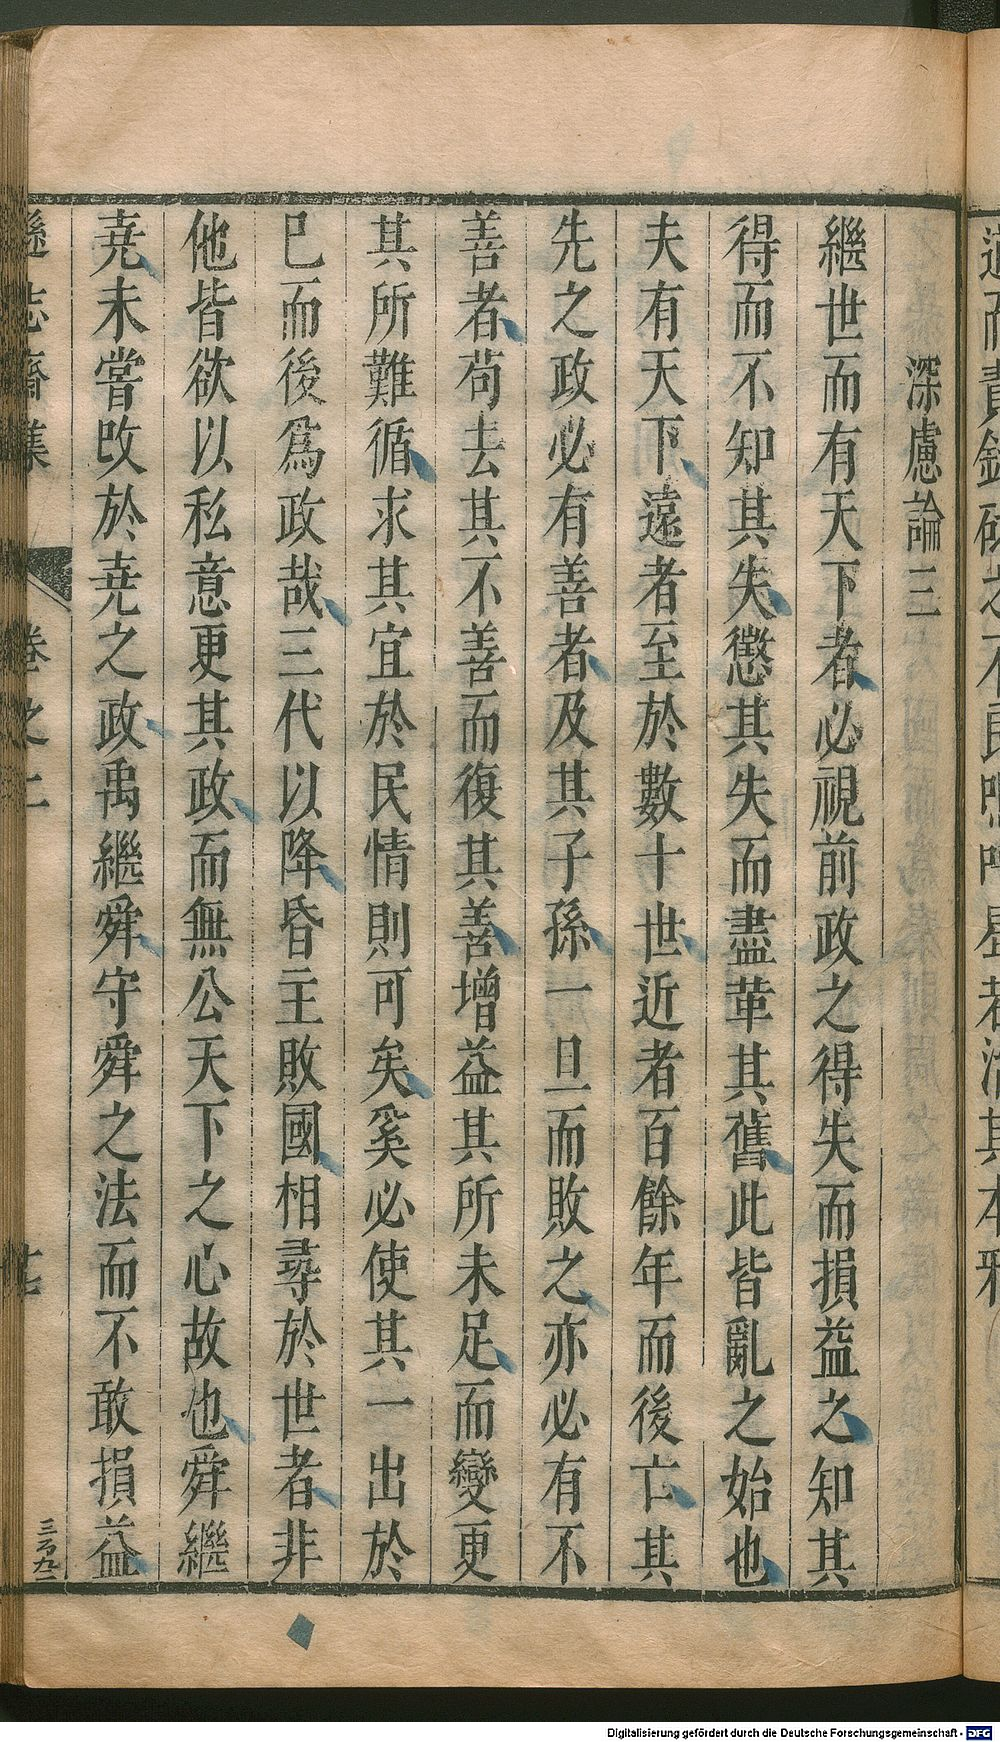 深慮論三
繼世而有天下者必視前政之得失而損益之知其
得而不知其失懲其失而盡革其舊此皆亂之始也
夫有天下遠者至於數十世近者百餘年而後亡其
先之政必有善者及其子孫一旦而敗之亦必有不
善者苟去其不善而復其善增益其所未足而變更
其所難循求其宜於民情則可矣奚必使其一出於
已而後爲政哉三代以降昏主敗國相尋於世者非
他皆欲以私意更其政而無公天下之心故也舜繼
堯未嘗改於堯之政禹繼舜守舜之法而不敢損益
遜志齋集 卷之二
三百九二
Digitalisierung gefördert durch die Deutsche Forschungsgemeinschaft - DFG